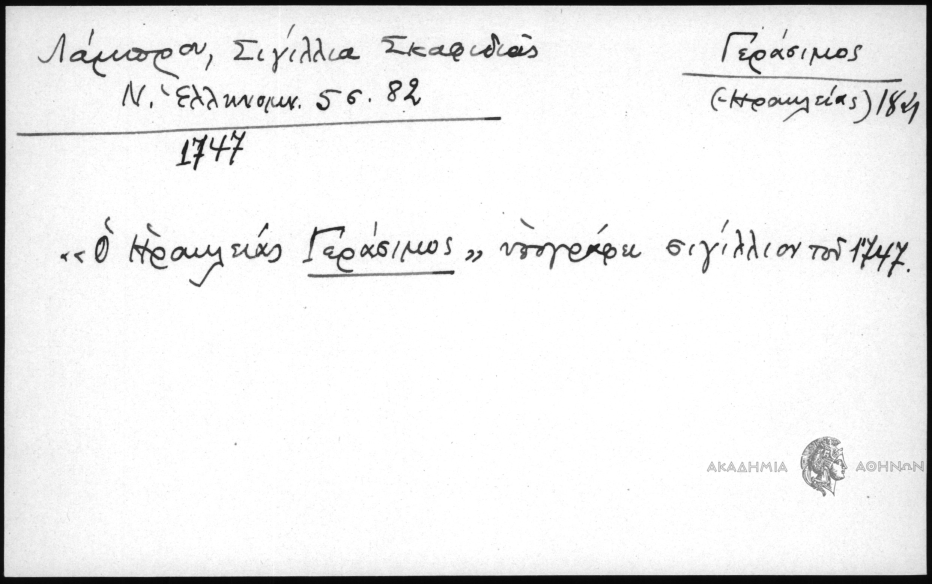 Λάμπρου, Σιγίλλια Σκαφιδιᾶς
Ν. Ἑλληνομν. 5 σ. 82
1747
Γεράσιμος
(-Ἡρακλείας)
«Ὁ Ἡρακλείας Γεράσιμος» ὑπογράφει σιγίλλιον τοῦ 1747.
ΑΚΑΔΗΜΙΑ ΑΘΗΝΩΝ